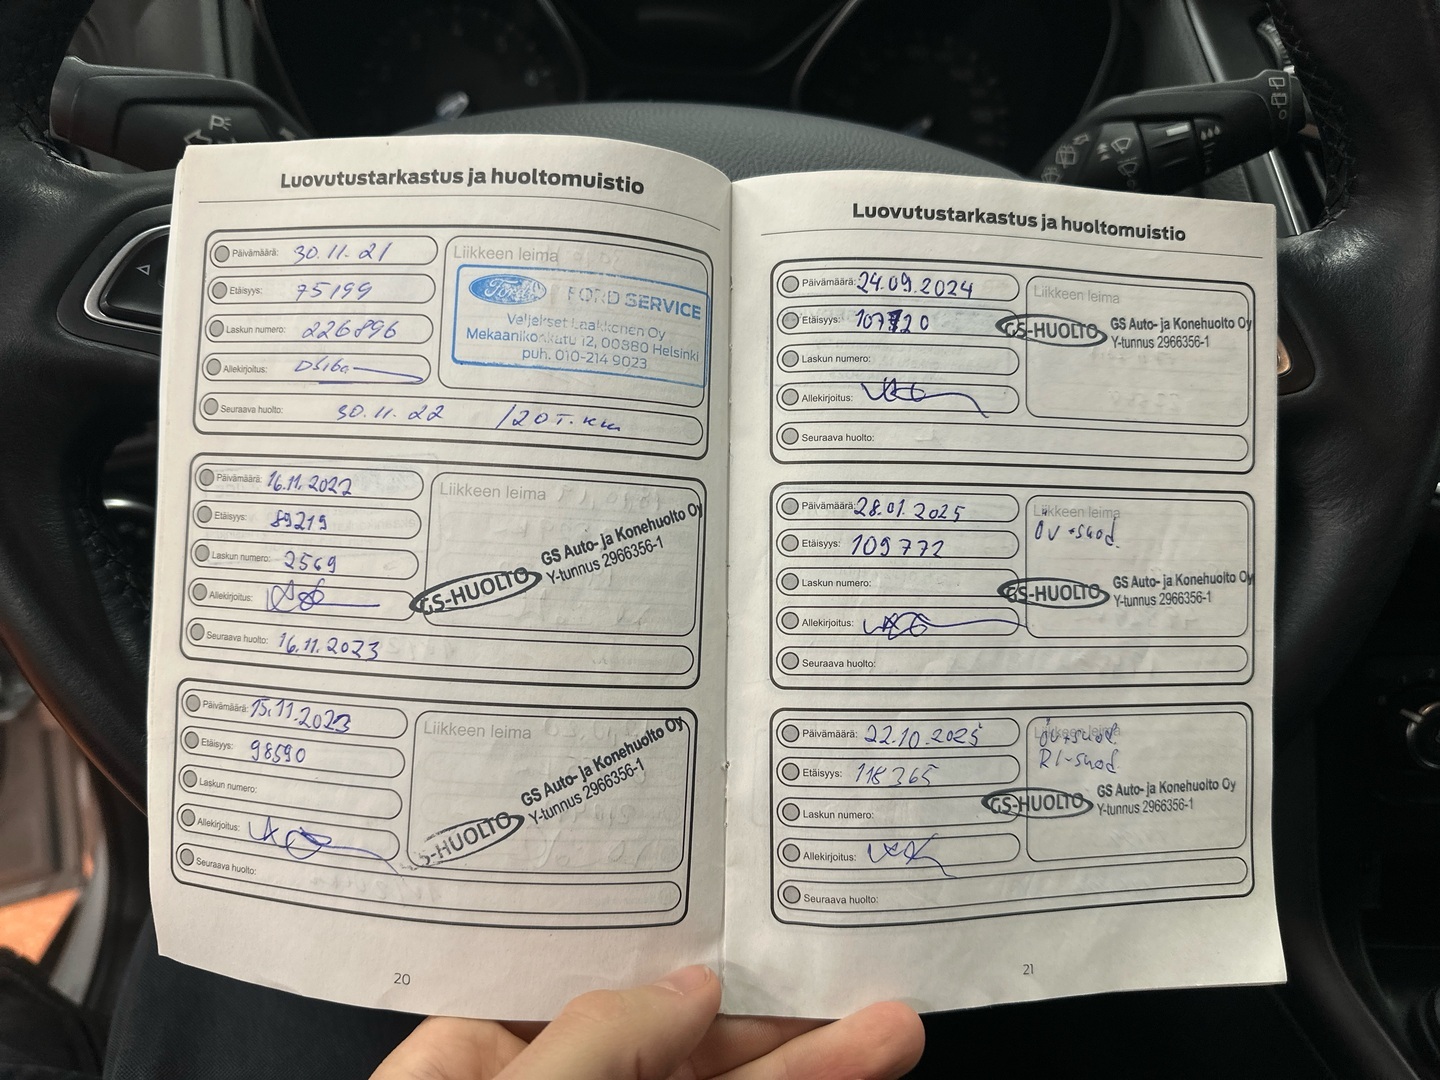 Luovutustarkastus ja huoltomuistio
Päivämäärä: 30.11.21
Etäisyys: 75199
Laskun numero: 226896
Allekirjoitus:
Seuraava huolto: 30.11.22 /20 T.km
Liikkeen leima
Ford FORD SERVICE
Veljekset Laakkonen Oy
Mekaanikonkatu 12, 00880 Helsinki
puh. 010-214 9023
Päivämäärä: 16.11.2022
Etäisyys: 89219
Laskun numero: 2569
Allekirjoitus:
Seuraava huolto: 16.11.2023
Liikkeen leima
GS-HUOLTO GS Auto- ja Konehuolto Oy
Y-tunnus 2966356-1
Päivämäärä: 15.11.2023
Etäisyys: 98590
Laskun numero:
Allekirjoitus:
Seuraava huolto:
Liikkeen leima
S-HUOLTO GS Auto- ja Konehuolto Oy
Y-tunnus 2966356-1
20
Luovutustarkastus ja huoltomuistio
Päivämäärä: 24.09.2024
Etäisyys: 107720
Laskun numero:
Allekirjoitus:
Seuraava huolto:
Liikkeen leima
GS-HUOLTO GS Auto- ja Konehuolto Oy
Y-tunnus 2966356-1
Päivämäärä: 28.01.2025
Etäisyys: 109772
Laskun numero:
Allekirjoitus:
Seuraava huolto:
Liikkeen leima
öv+suod.
GS-HUOLTO GS Auto- ja Konehuolto Oy
Y-tunnus 2966356-1
Päivämäärä: 22.10.2025
Etäisyys: 118365
Laskun numero:
Allekirjoitus:
Seuraava huolto:
Liikkeen leima
öv+suod
RI-suod
GS-HUOLTO GS Auto- ja Konehuolto Oy
Y-tunnus 2966356-1
21